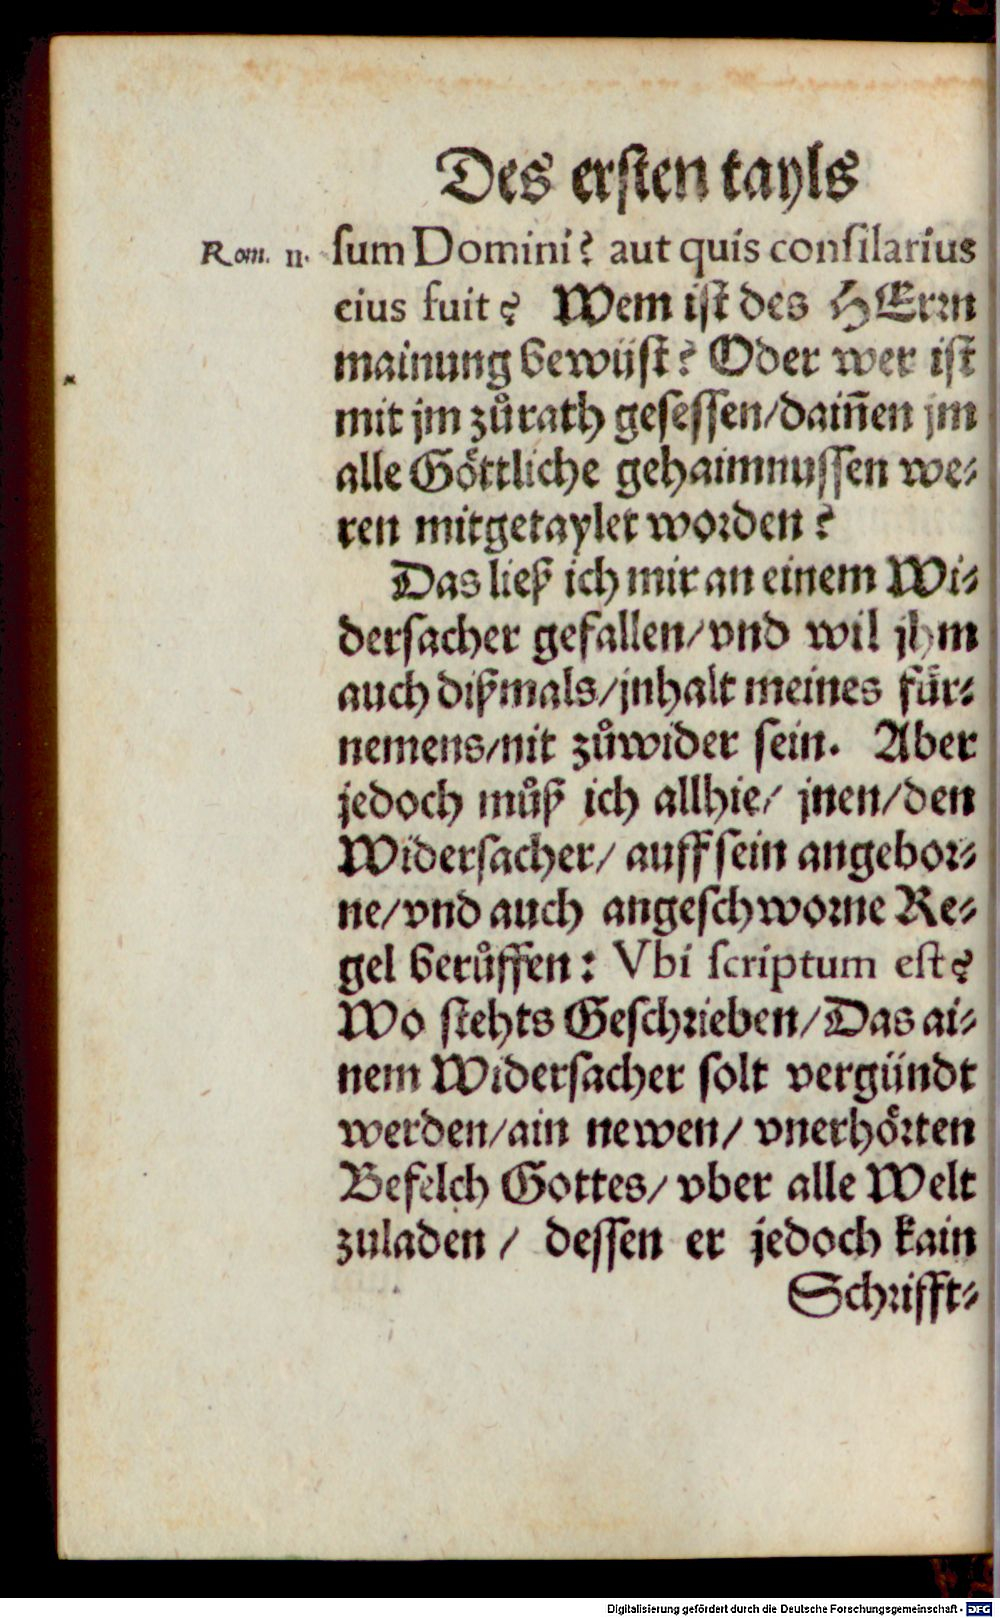 Des ersten tayls
Rom. 11. sum Domini? aut quis consilarius
eius fuit? Wem ist des HErrn
mainung bewüst? Oder wer ist
mit jm zůrath gesessen/dain̄en jm
alle Göttliche gehaimnussen we-
ren mitgetaylet worden?
Das ließ ich mir an einem Wi-
dersacher gefallen/vnd wil jhm
auch dißmals/jnhalt meines für-
nemens/nit zůwider sein. Aber
jedoch můß ich allhie/ jnen/den
Widersacher/ auff sein angebor-
ne/vnd auch angeschworne Re-
gel berůffen: Vbi scriptum est?
Wo stehts Geschrieben/Das ai-
nem Widersacher solt vergündt
werden/ain newen/ vnerhörten
Befelch Gottes/ vber alle Welt
zuladen / dessen er jedoch kain
Schrifft-
Digitalisierung gefördert durch die Deutsche Forschungsgemeinschaft - DFG